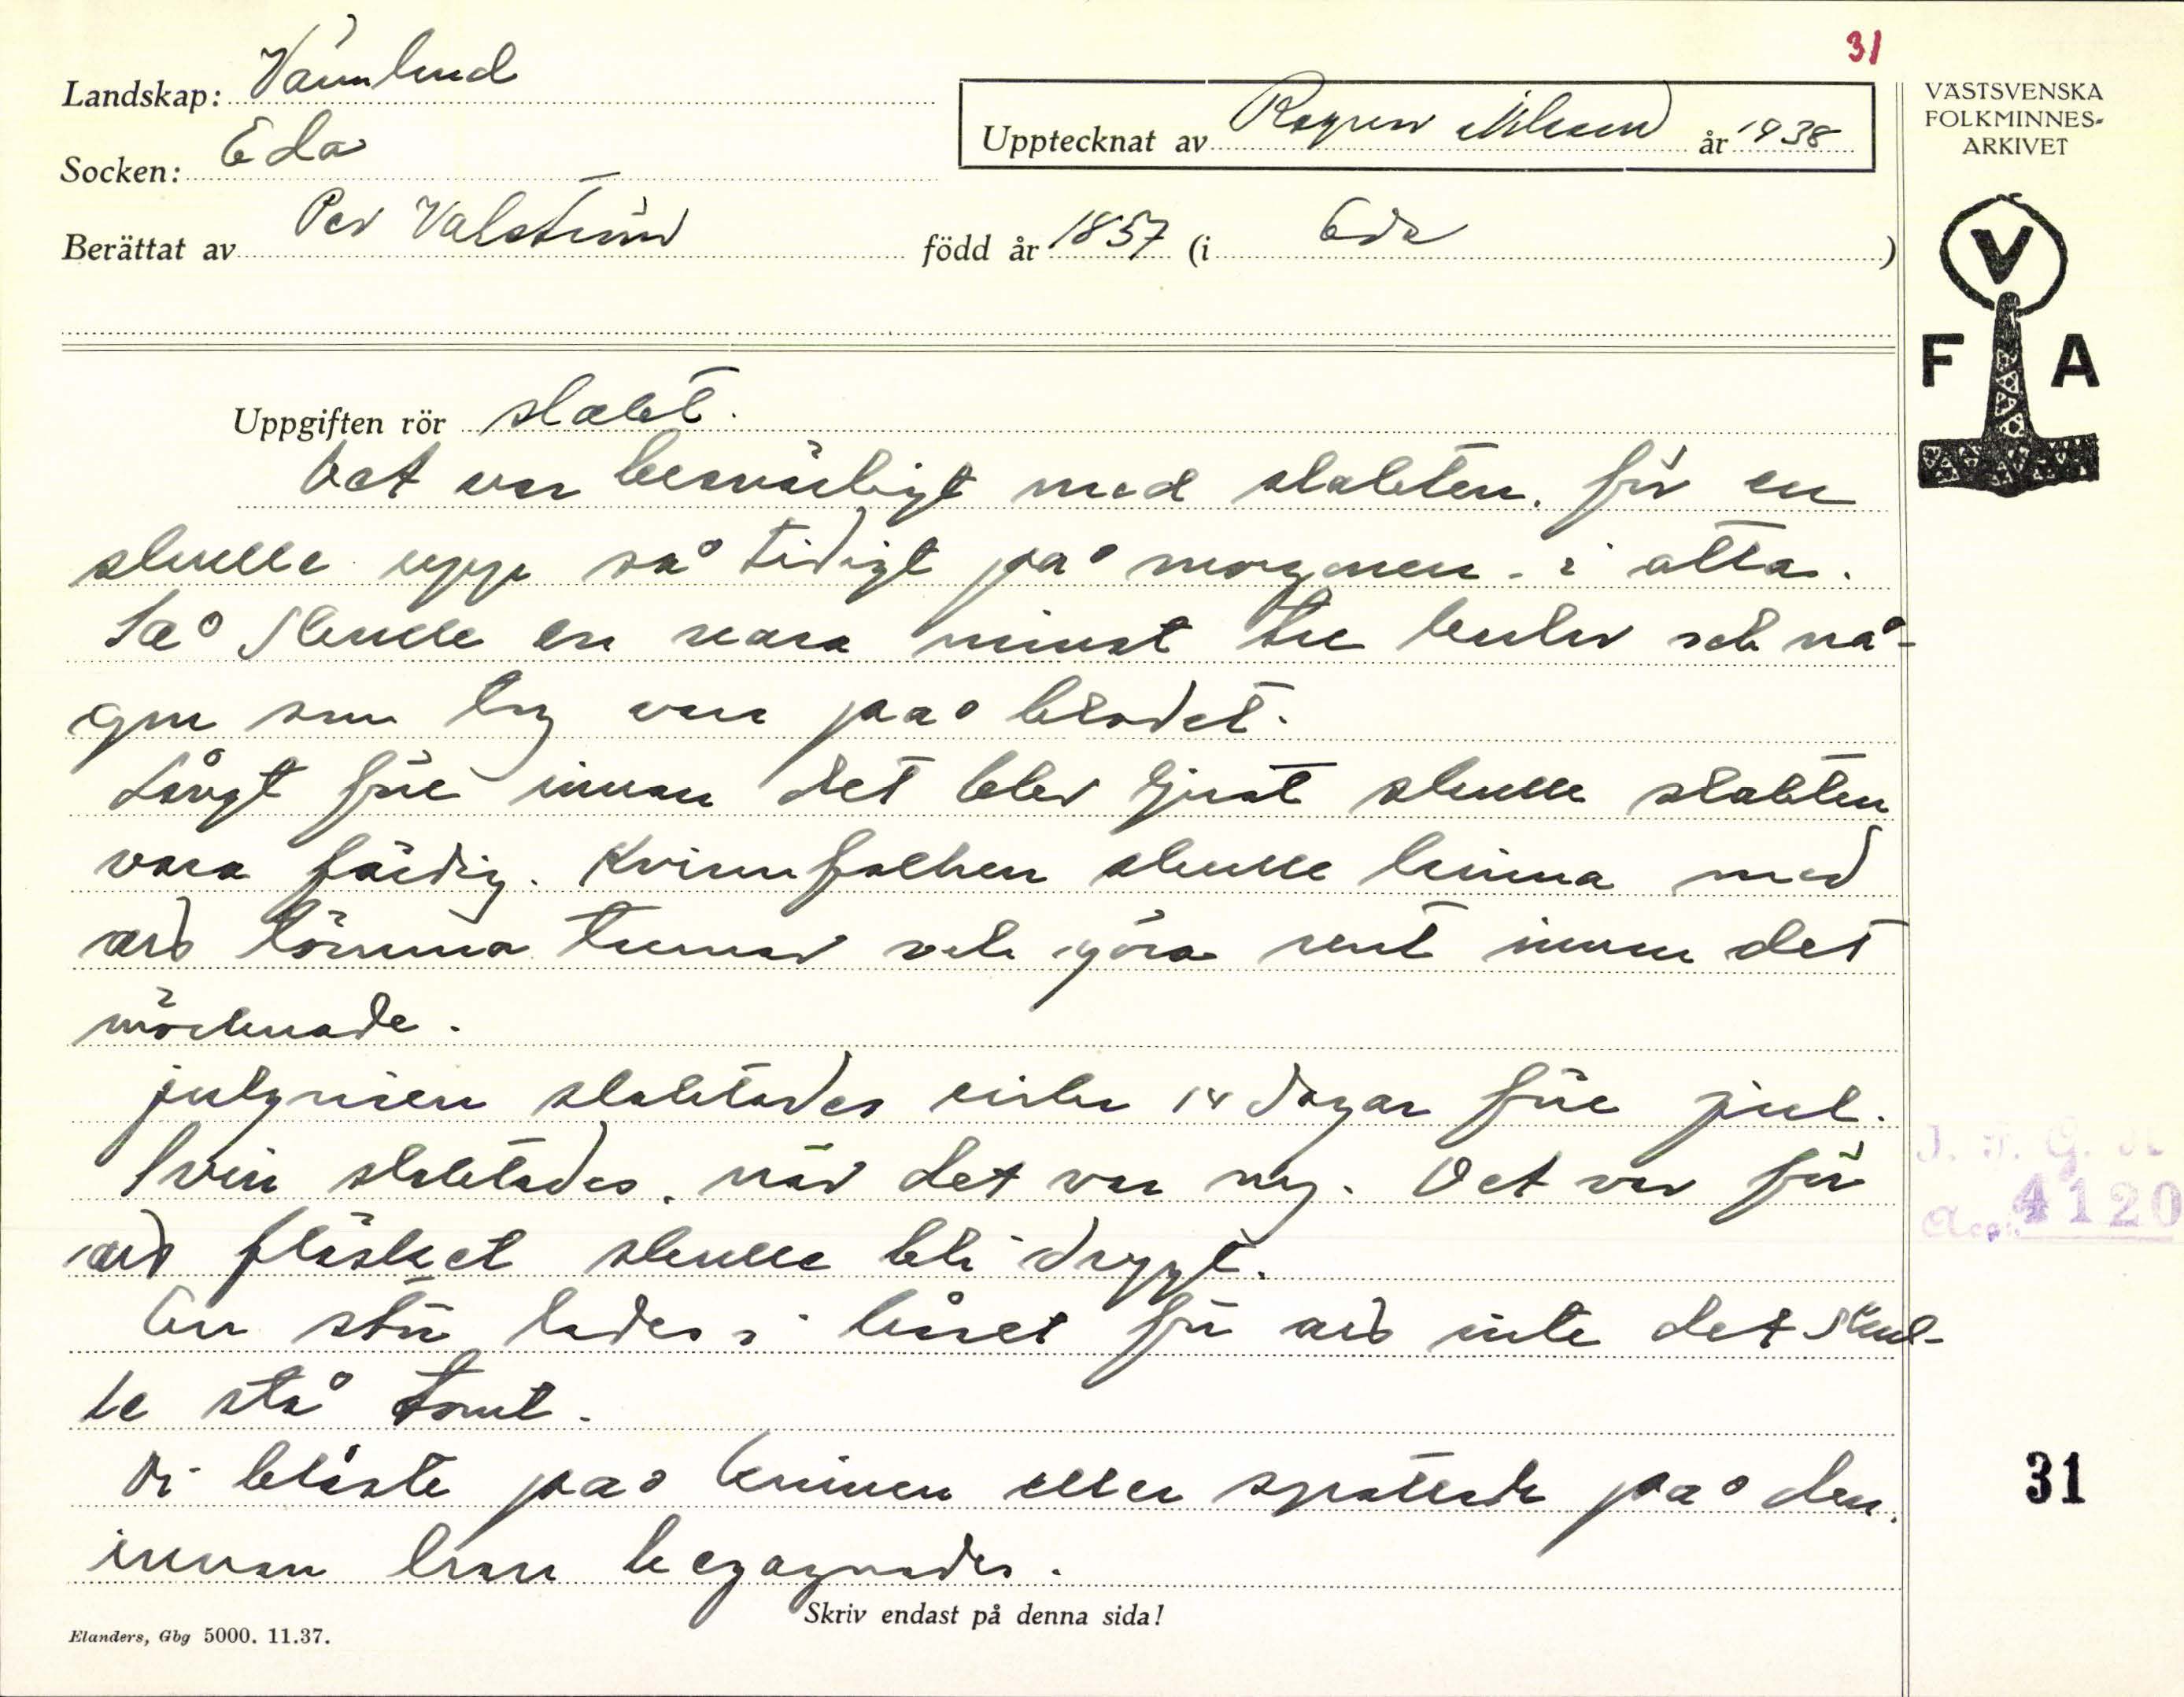 31
Landskap: Värmland
Socken: Eda
Upptecknat av Ragnar Nilsson år 1938
Berättat av Per Valström född år 1857 (i Eda )
VÄSTSVENSKA
FOLKMINNES-
ARKIVET
V
F A
Uppgiften rör slakt.
Det var besvärligt med slakten, för en
skulle upp så tidigt på morgonen - i otta.
Så skulle en vara minst tre karlar och nå-
gon som tog vara på blodet.
Långt före innan det blev ljust skulle slakten
vara färdig. Kvinnfolken skulle hinna med
att tömma tarmar och göra rent innan det
mörknade.
julgrisen slaktades cirka 14 dagar före jul.
Svin slaktades, när det var ny. Det var för
att fläsket skulle bli drygt.
En stör lades i båset för att inte det skul-
le stå tomt.
Di blåste på kniven eller spottade på den,
innan han begagnades.
Skriv endast på denna sida!
Elanders, Gbg 5000. 11.37.
4120
31